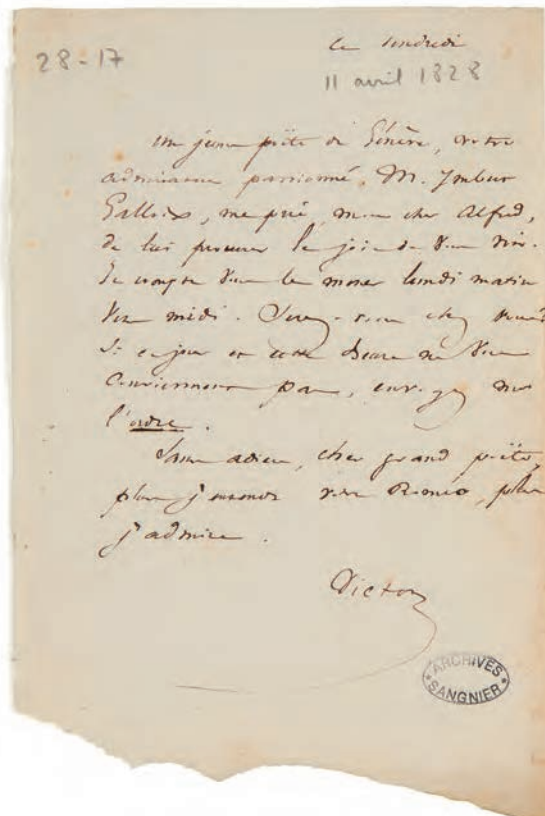 28-17
ce vendredi
11 avril 1828
Un jeune poëte de Genève, votre
admirateur passionné, M. Ymbert
Galloix, me prie, mon cher Alfred,
de lui procurer la joie de vous voir.
Je compte vous le mener lundi matin
vers midi. Serez-vous chez vous?
Si ce jour et cette heure ne vous
conviennent pas, envoyez-moi
l'ordre.
Sans adieu, cher grand poëte,
plus j'entends votre Roméo, plus
j'admire.
Victor
ARCHIVES
SANGNIER